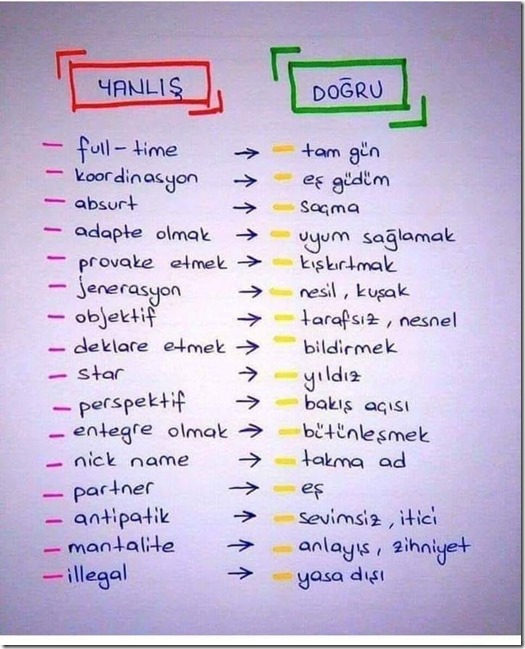 YANLIŞ DOĞRU
full-time → tam gün
koordinasyon → eş güdüm
absurt → saçma
adapte olmak → uyum sağlamak
provake etmek → kışkırtmak
jenerasyon → nesil, kuşak
objektif → tarafsız, nesnel
deklare etmek → bildirmek
star → yıldız
perspektif → bakış açısı
entegre olmak → bütünleşmek
nick name → takma ad
partner → eş
antipatik → sevimsiz, itici
mantalite → anlayış, zihniyet
illegal → yasa dışı